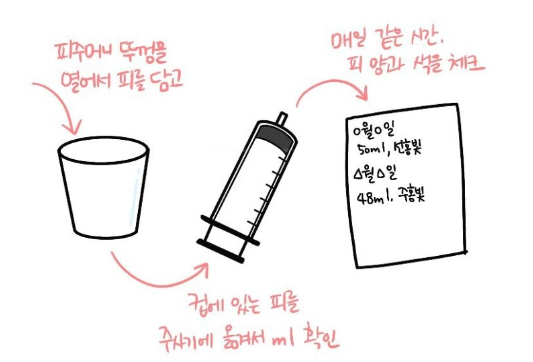 피주머니 뚜껑을
열에서 피를 담고
컵에 있는 피를
주사기에 옮겨서 ml 확인
매일 같은 시간,
피 양과 색을 체크
O월O일
50ml, 선홍빛
△월△일
48ml, 주홍빛